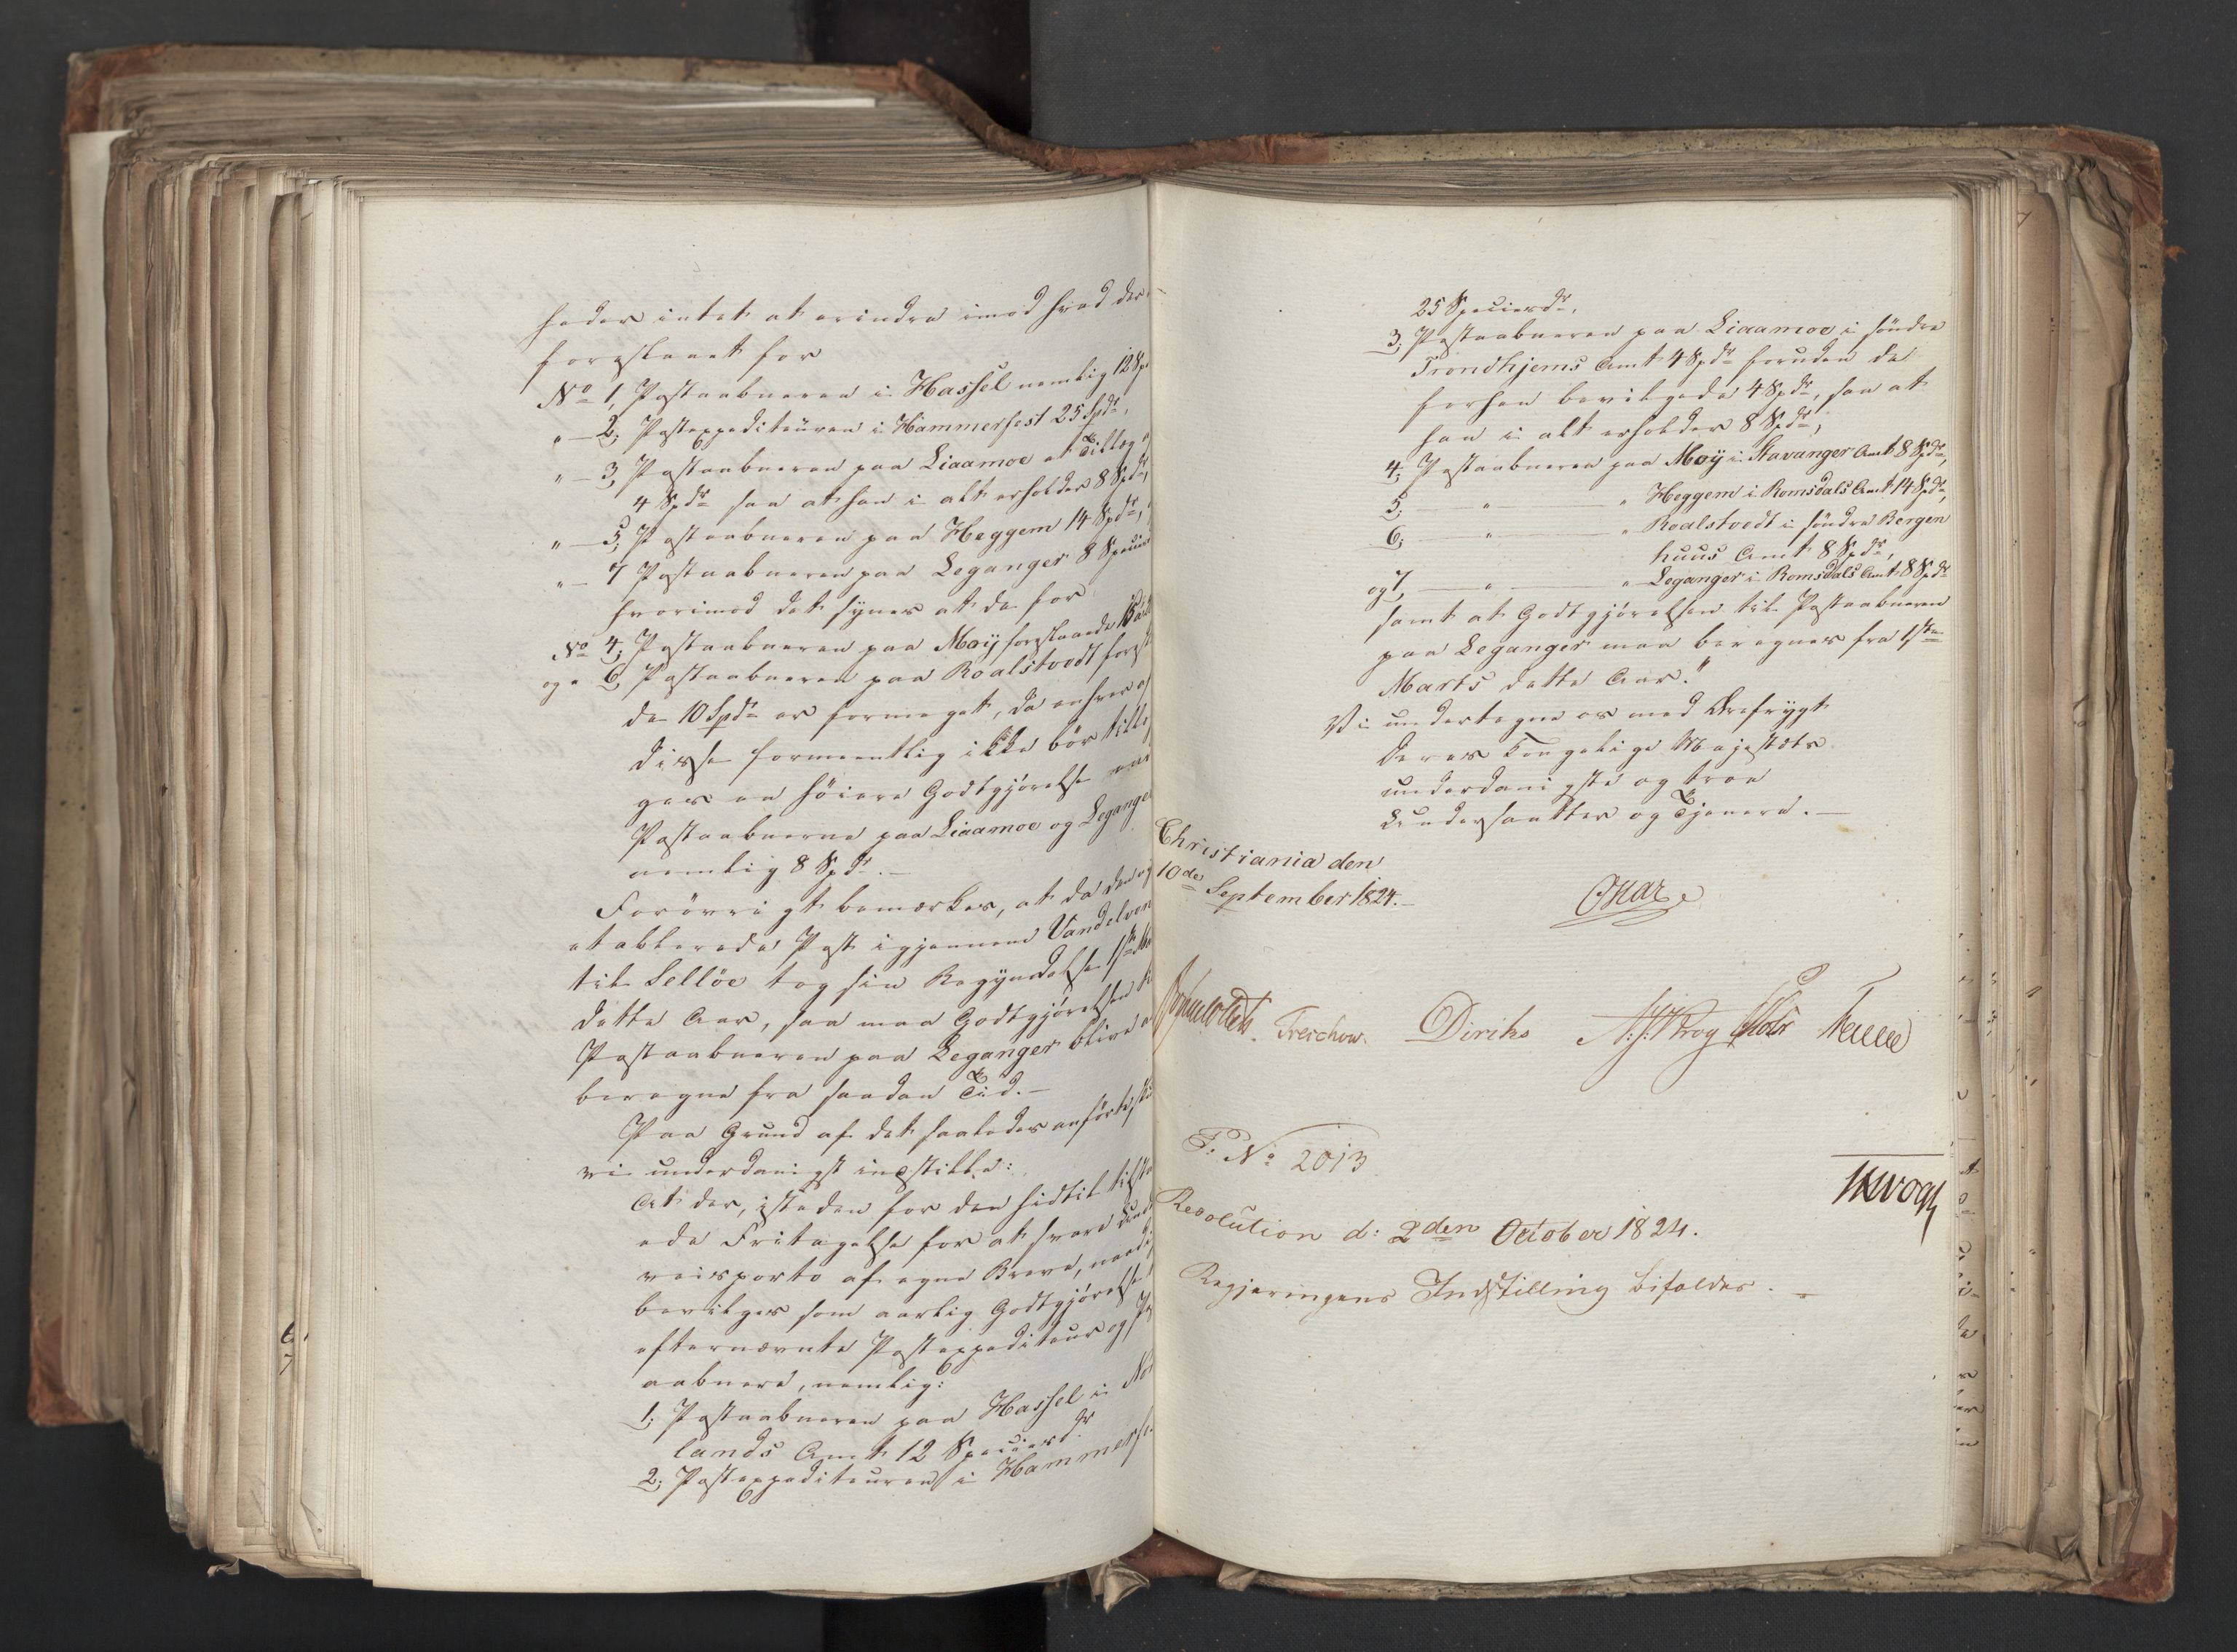 heder intet at erindre imod hvad der
foreslaaet for
No 1, Postaabneren i Hassel nemlig 12 Sp
" — 2, Postexpediteüren i Hammerfest 25 Spdr,
" — 3, Postaabneren paa Liaamoe et Tillæg
4 Spdr saa at han i alt erholder 8 Spdr,
" — 5, Postaabneren paa Heggem 14 Spdr,
" — 7 Postaabneren paa Leganger 8 Specie
hvorimod det synes at de for
No 4, Postaabneren paa Moÿ foreslaaede
og " 6, Postaabneren paa Roalstvedt foresl
de 10 Spdr er formeget, da enhver af
disse formeentlig ikke bör tillæg
ges en höiere Godtgjörelse end
Postaabnerne paa Liaamoe og Legange
nemlig 8 Spdr. —
Forövrigt bemærkes, at da den
etablerede Post igjennem Vandelven
til Sellöe tog sin Begyndelse 1ste
dette Aar, saa maa Godtgjörelsen
Postaabneren paa Leganger blive a
beregne fra saadan Tid. —
Paa Grund af det saaledes anförte
vi underdanigst indstille:
At der, isteden for den hidtil tilsta
ede Fritagelse for at svare
veisporto af egne Breve,
bevilges som aarlig Godtgjörelse
efternævnte Postexpediteur og Po
aabnere, nemlig:
1, Postaabneren paa Hassel i Nor
lands Amt 12 Speciesdr.
2, Postexpediteuren i Hammerfe
25 Speciesdr,
3, Postaabneren paa Liaamoe i söndre
Trondhjems Amt 4 Spdr foruden de
forhen bevilgede 4 Spdr, saa at
han i alt erholder 8 Spdr,
4, Postaabneren paa Moÿ i Stavanger Amt 8 Spdr,
5, — " — " Heggem i Romsdals Amt 14 Spdr,
6, — " — " Roalstvedt i söndre Bergen
huus Amt 8 Spdr,
og 7, — " — " Leganger i Romsdals Amt 8 Spdr
samt at Godtgjörelsen til Postaabneren
paa Leganger maa beregnes fra 1ste
Marts dette Aar."
Vi undertegne os med Ærefrygt
Deres Kongelige Majestæts
underdanigste og troe
Undersaatter og Tjenere. —
Christiania den
10de September 1824. —
Oscar
Treschow. Diriks
P: No 2013
Resolution d: 2den October 1824.
Regjeringens Indstilling bifaldes. —